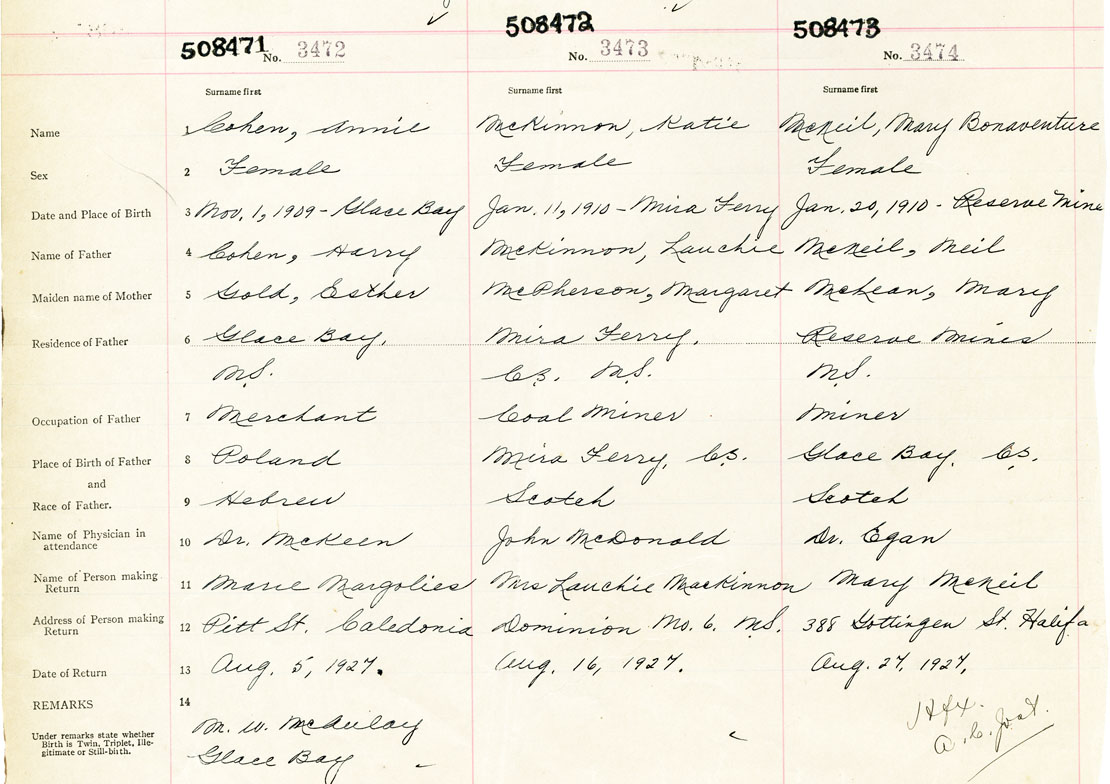 508471 508472 508473
No. 3472 No. 3473 No. 3474
Surname first Surname first Surname first
Name 1 Cohen, Annie McKinnon, Katie McNeil, Mary Bonaventure
Sex 2 Female Female Female
Date and Place of Birth 3 Nov. 1, 1909 - Glace Bay Jan. 11, 1910 - Mira Ferry Jan. 20, 1910 - Reserve Mine
Name of Father 4 Cohen, Harry McKinnon, Lauchie McNeil, Neil
Maiden name of Mother 5 Gold, Esther McPherson, Margaret McLean, Mary
Residence of Father 6 Glace Bay, Mira Ferry, Reserve Mines
N.S. C.B. N.S. N.S.
Occupation of Father 7 Merchant Coal Miner Miner
Place of Birth of Father 8 Poland Mira Ferry, C.B. Glace Bay, C.B.
and
Race of Father. 9 Hebrew Scotch Scotch
Name of Physician in attendance 10 Dr. McKeen John McDonald Dr. Egan
Name of Person making Return 11 Marie Margolies Mrs Lauchie MacKinnon Mary McNeil
Address of Person making Return 12 Pitt St. Caledonia Dominion No. 6. N.S. 388 Gottingen St. Halifa
Date of Return 13 Aug. 5, 1927. Aug. 16, 1927. Aug. 27, 1927,
REMARKS 14
M. W. McAulay Hfx.
Under remarks state whether
Birth is Twin, Triplet, Ille-
gitimate or Still-birth.
Glace Bay